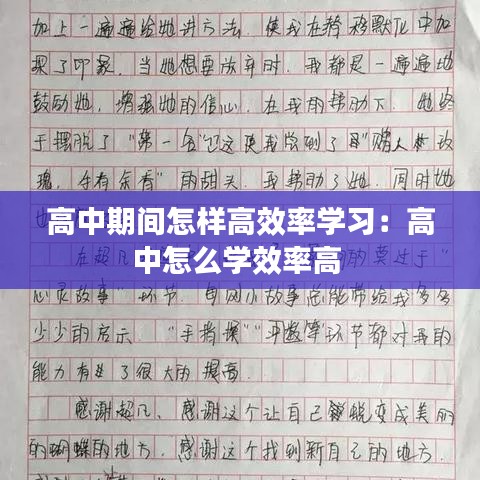 加上一遍遍给她讲方法。使我在潜移默化中加
深了印象。当她想要放弃时，我都是一遍遍地
鼓励她，增强她的信心。在我的帮助下，她终
于摆脱了“第一名”
这使我尝到了“赠人玫
瑰，手有余香”的甜头。我帮助了她，同时她
高中期间怎样高效率学习：高
中怎么学效率高
在超凡
的莫过于
“心灵故事”环节，每個小故事总能带给我多多
少少的启示。“手指操”“平数等”环节都对我的
能力有了很大的提高。
感谢超凡，感谢这个让自己蜕变成美丽
的蝴蝶的地方，感谢这个找到新自己的地方。